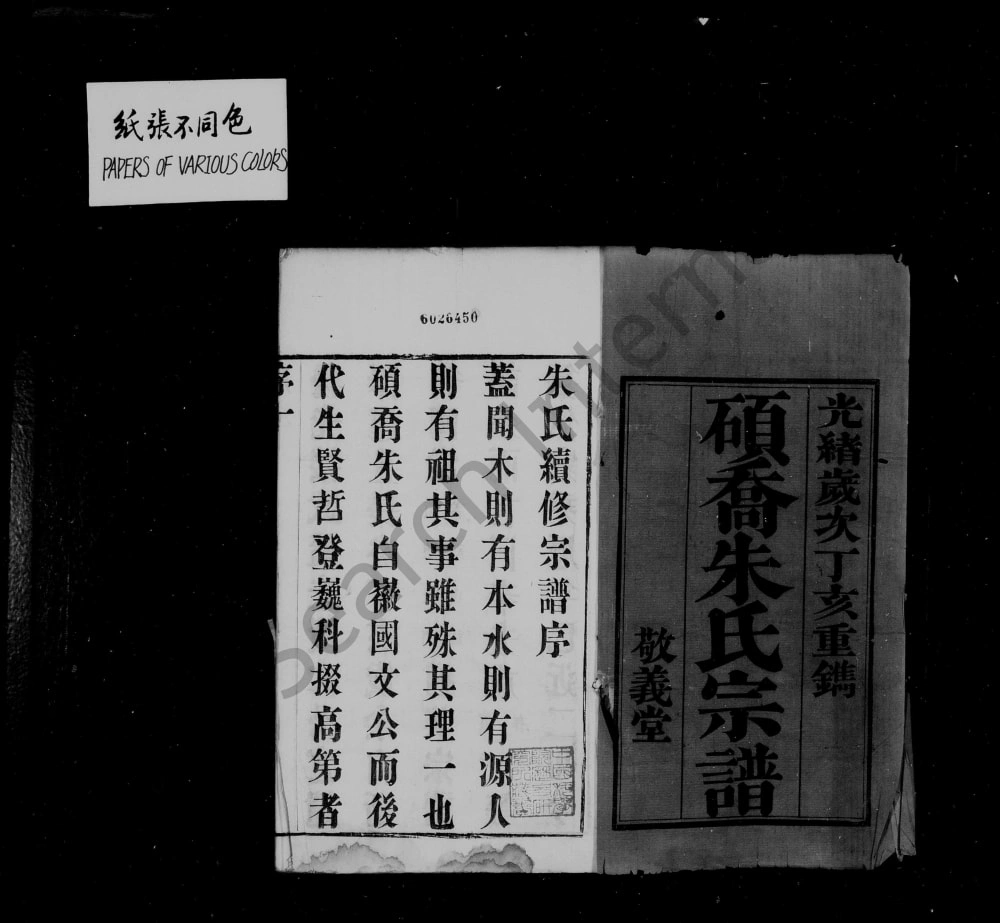 紙張不同色
PAPERS OF VARIOUS COLORS
光緒歲次丁亥重鐫
碩喬朱氏宗譜
敬義堂
6026450
朱氏續修宗譜序
蓋聞木則有本水則有源人
則有祖其事雖殊其理一也
碩喬朱氏自徽國文公而後
代生賢哲登巍科掇高第者
序一
Search Intern